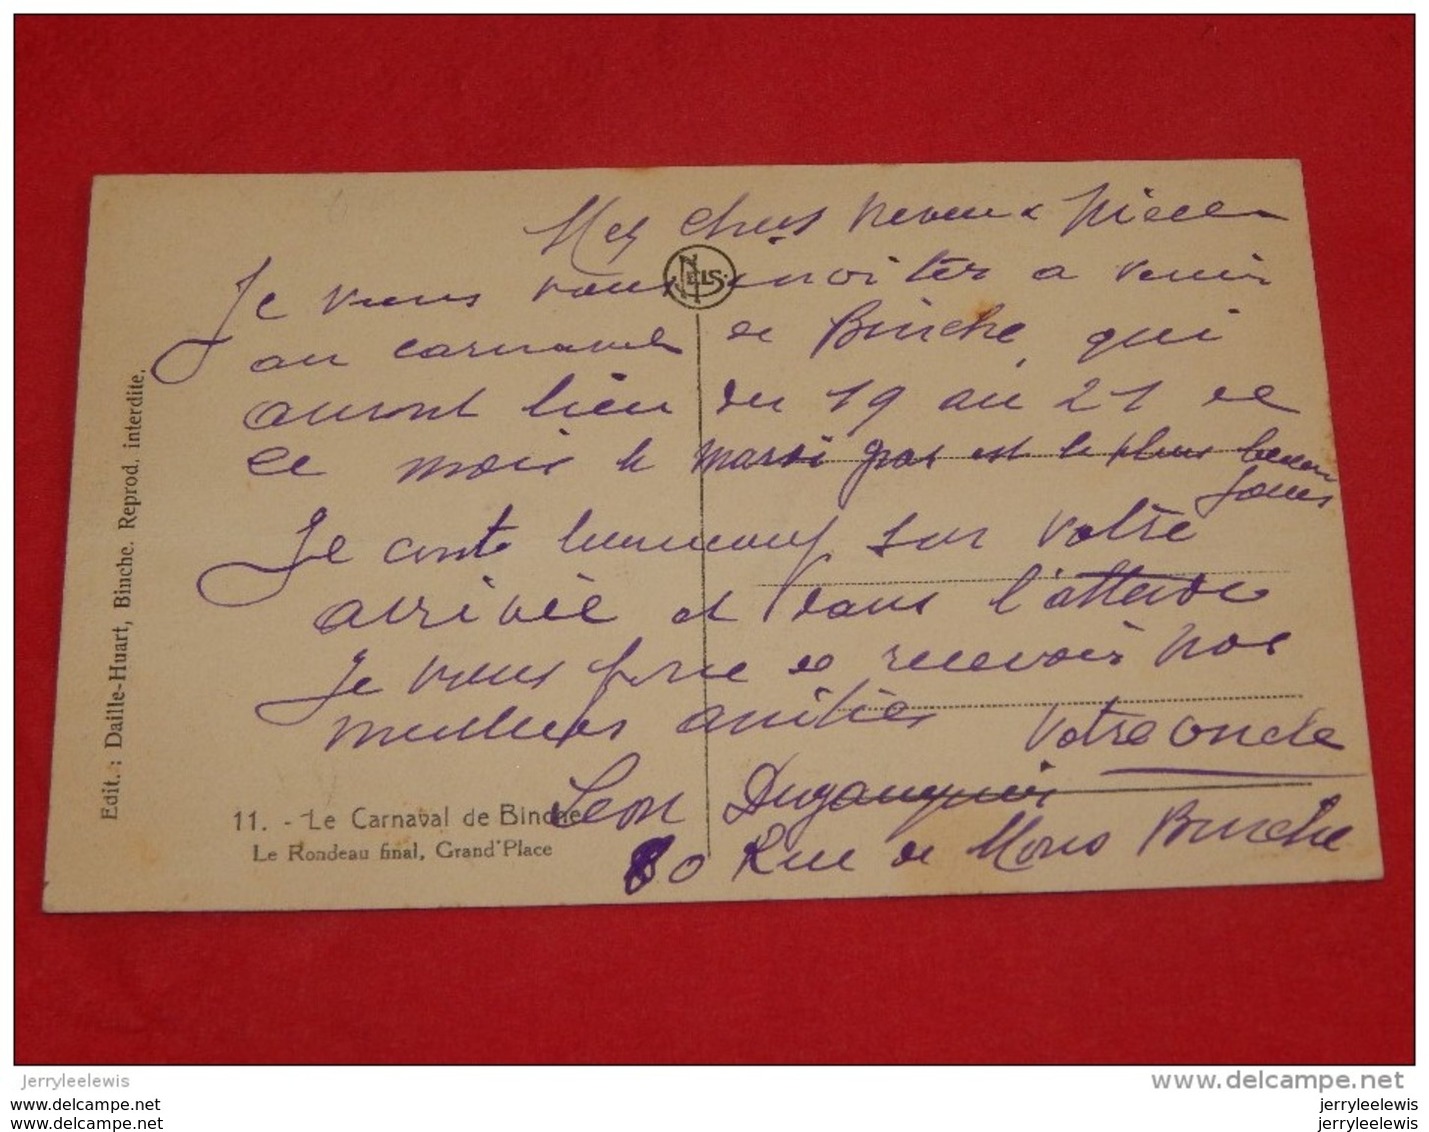 Mes chers neveux Nièces
Je viens vous inviter a venir
au carnaval de Binche, qui
auront lieu du 19 au 21 de
ce mois le mardi gras est le plus beau
jours
Je conte beaucoup sur votre
arrivée et dans l'attente
Je vous prie de recevoir nos
meilleurs amitiés Votre oncle
Leon
80 Rue de Mons Binche
NELS
11. - Le Carnaval de Binche
Le Rondeau final, Grand'Place
Edit. : Daille-Huart, Binche. Reprod. interdite.
jerryleelewis
www.delcampe.net
www.delcampe.net
www.delcampe.net
jerryleelewis
jerryleelewis